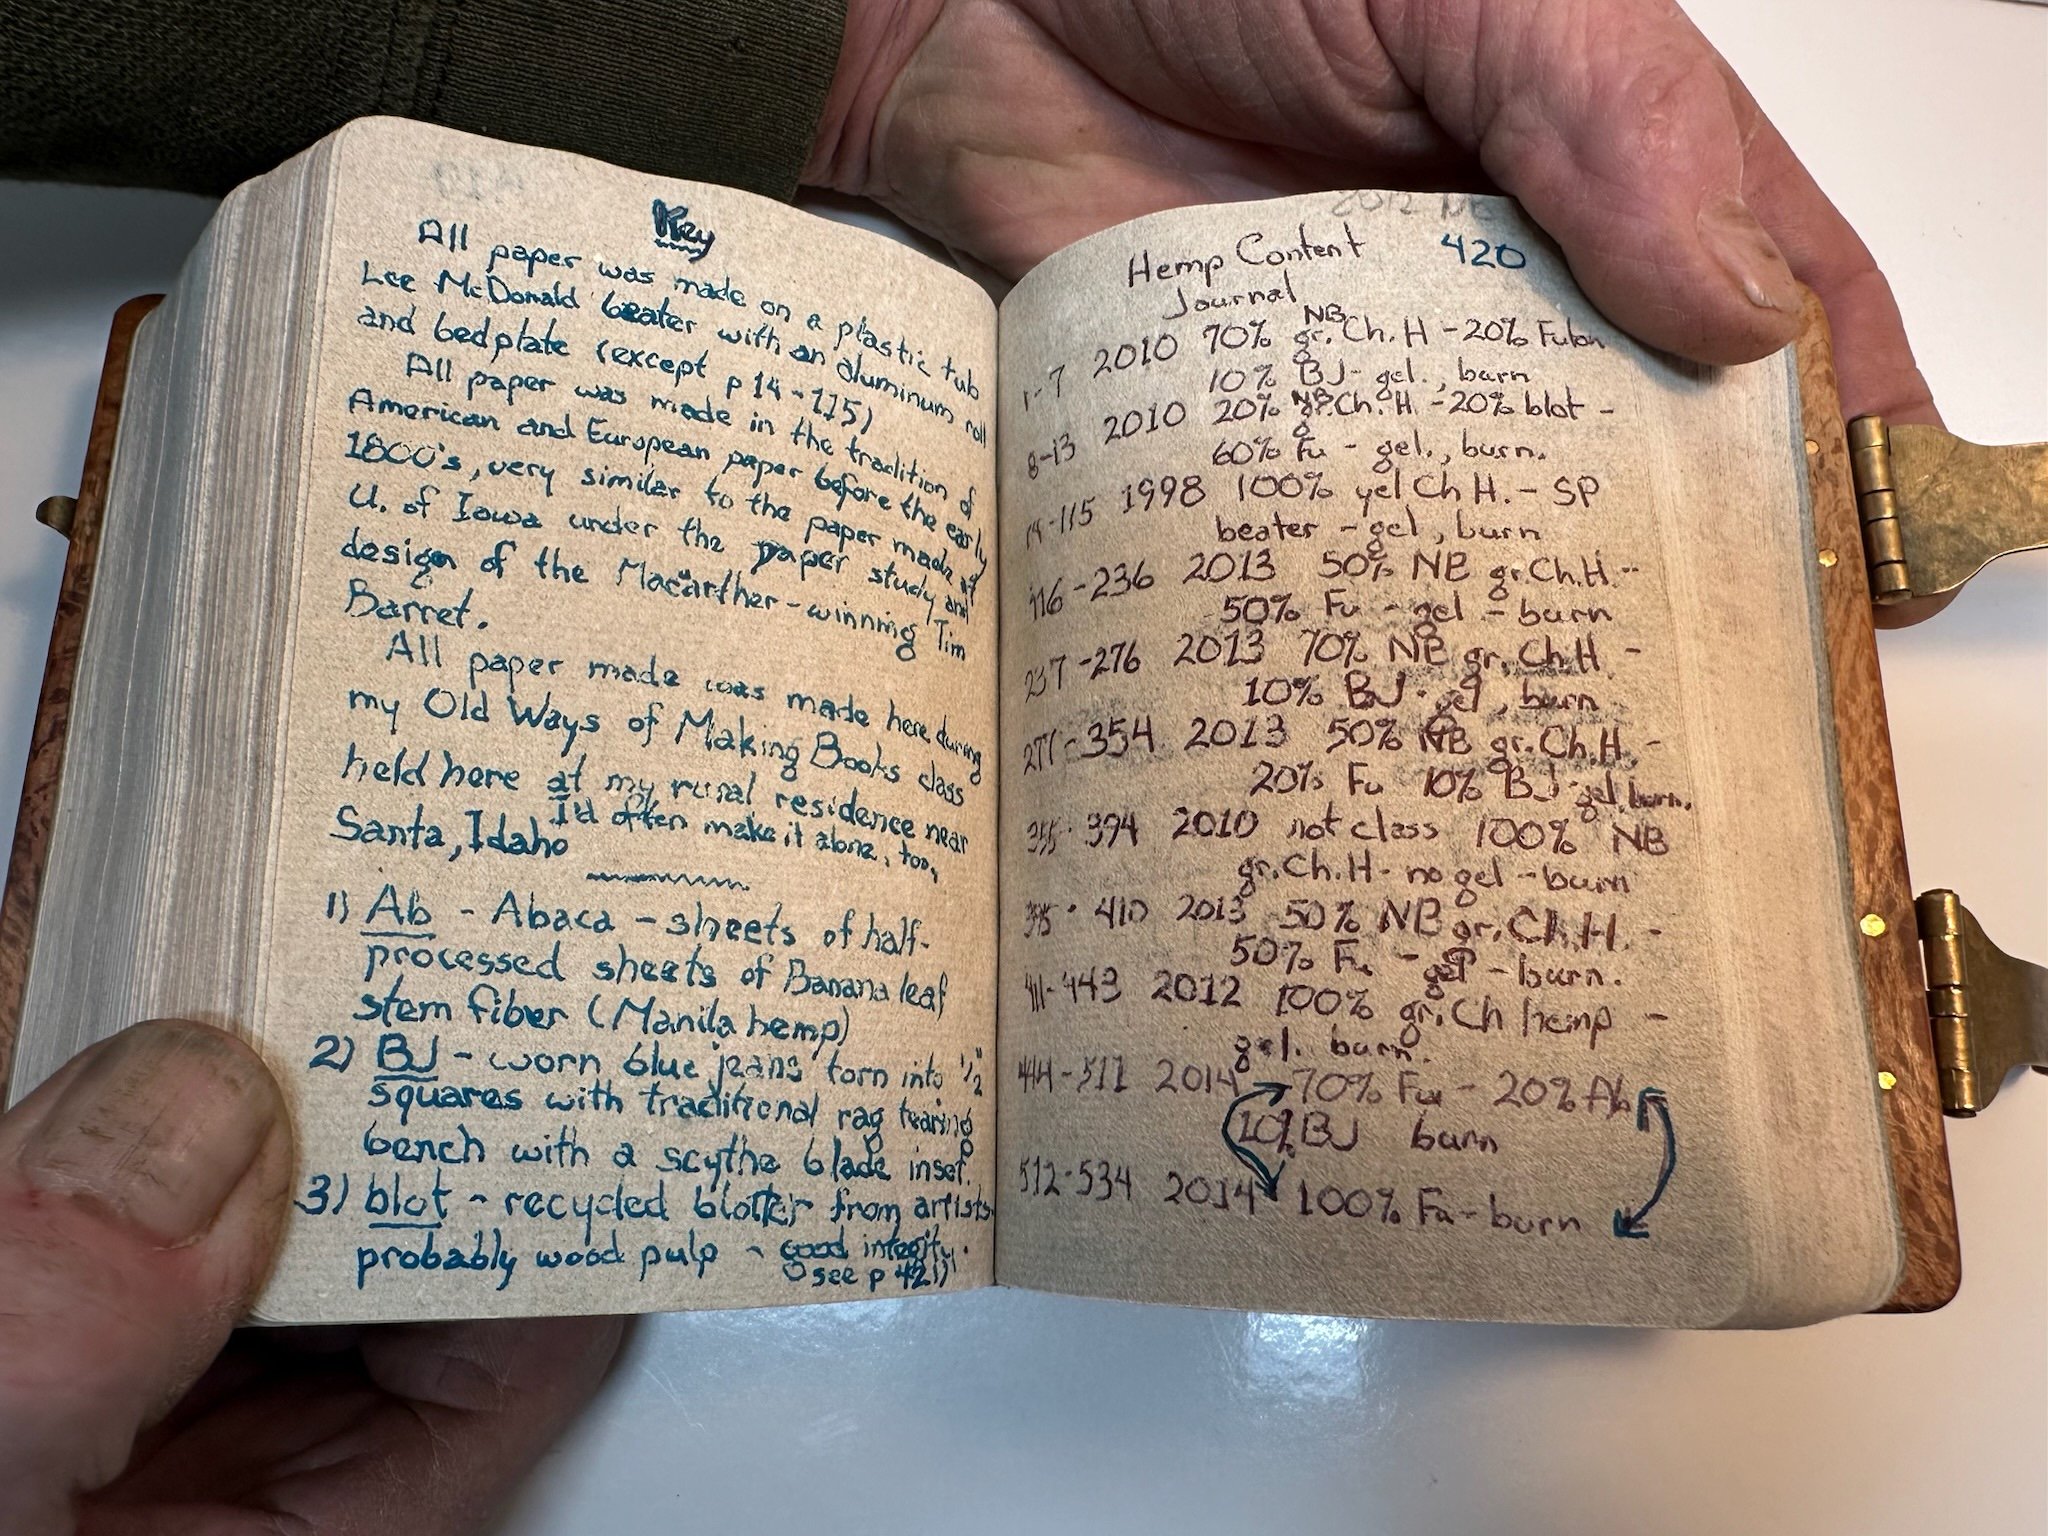 Key
All paper was made on a plastic tub
Lee McDonald beater with an aluminum roll
and bedplate (except p 14-115)
All paper was made in the tradition of
American and European paper before the early
1800's, very similar to the paper made at
U. of Iowa under the paper study and
design of the Macarther-winning Tim
Barret.
All paper made was made here during
my Old Ways of Making Books class
held here at my rural residence near
Santa, Idaho I'd often make it alone, too,
1) Ab - Abaca - sheets of half-
processed sheets of Banana leaf
stem fiber (Manila hemp)
2) BJ - worn blue jeans torn into 1/2"
squares with traditional rag tearing
bench with a scythe blade inset.
3) blot - recycled blotter from artists
probably wood pulp - good integity.
see p 421)
Hemp Content 420
Journal
1-7 2010 70% NB gr. Ch. H - 20% Futon
10% BJ - gel., burn
8-13 2010 20% NB gr. Ch. H - 20% blot -
60% Fu - gel., burn.
14-115 1998 100% yel Ch H. - SP
beater - gel, burn
116-236 2013 50% NB gr. Ch. H. -
50% Fu - gel - burn
237-276 2013 70% NB gr. Ch H -
10% BJ - gel, burn
277-354 2013 50% NB gr. Ch. H. -
20% Fu 10% BJ gel, burn.
355-394 2010 not class 100% NB
gr. Ch. H - no gel - burn
395-410 2013 50% NB gr. Ch. H. -
50% Fu - gel - burn.
411-443 2012 100% gr. Ch hemp -
gel. burn.
444-511 2014 70% Fu - 20% Ab
10% BJ burn
512-534 2014 100% Fu - burn